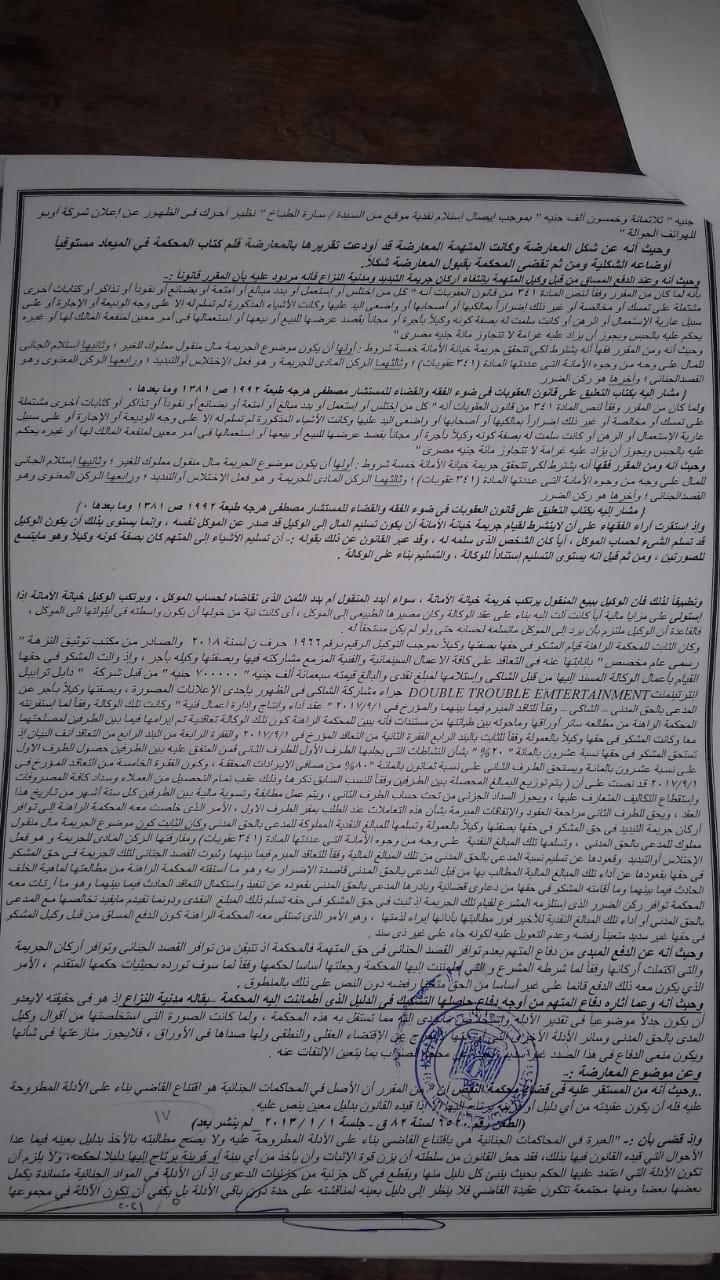 جنيه " ثلاثمائة وخمسون ألف جنيه " بموجب إيصال إستلام نقدية موقع من السيدة / سارة الطباخ " نظير أجرك فى الظهور عن إعلان شركة أوبو
للهواتف الجوالة "
وحيث أنه عن شكل المعارضة وكانت المتهمة المعارضة قد أودعت تقريرها بالمعارضة قلم كتاب المحكمة في الميعاد مستوفياً
أوضاعه الشكلية ومن ثم تقضى المحكمة بقبول المعارضة شكلاً.
وحيث أنه وعند الدفع المساق من قبل وكيل المتهمة بإنتفاء أركان جريمة التبديد ومدنية النزاع فأنه مردود عليه بأن المقرر قانوناً :-
بأنه لما كان من المقرر وفقاً لنص المادة ٣٤١ من قانون العقوبات أنه " كل من إختلس أو إستعمل أو بدد مبالغ أو أمتعة أو بضائع أو نقوداً أو تذاكر أو كتابات أخرى
مشتملة على تمسك أو مخالصة أو غير ذلك إضراراً بمالكيها أو أصحابها أو واضعى اليد عليها وكانت الأشياء المذكورة لم تسلم له إلا على وجه الوديعة أو الإجارة أو على
سبيل عارية الإستعمال أو الرهن أو كانت سلمت له بصفة كونه وكيلاً بأجرة أو مجاناً بقصد عرضها للبيع أو بيعها أو إستعمالها فى أمر معين لمنفعة المالك لها أو غيره
يحكم عليه بالحبس ويجوز أن يزاد عليه غرامة لا تتجاوز مائة جنيه مصرى "
وحيث أنه ومن المقرر فقهاً أنه يشترط لكى تتحقق جريمة خيانة الأمانة خمسة شروط : أولها أن يكون موضوع الجريمة مال منقول مملوك للغير ؛ وثانيها إستلام الجانى
للمال على وجه من وجوه الأمانة التى عددتها المادة (٣٤١ عقوبات) ؛ وثالثهما الركن المادى للجريمة و هو فعل الإختلاس أوالتبديد ؛ ورابعها الركن المعنوى وهو
القصدالجنائى ؛ وأخرها هو ركن الضرر
( مشار إليه بكتاب التعليق على قانون العقوبات فى ضوء الفقه والقضاء للمستشار مصطفى هرجه طبعة ١٩٩٢ ص ١٣٨١ وما بعدها ٠
ولما كان من المقرر وفقاً لنص المادة ٣٤١ من قانون العقوبات أنه " كل من إختلس أو إستعمل أو بدد مبالغ أو أمتعة أو بضائع أو نقوداً أو تذاكر أو كتابات أخرى مشتملة
على تمسك أو مخالصة أو غير ذلك إضراراً بمالكيها أو أصحابها أو واضعى اليد عليها وكانت الأشياء المذكورة لم تسلم له إلا على وجه الوديعة أو الإجارة أو على سبيل
عارية الإستعمال أو الرهن أو كانت سلمت له بصفة كونه وكيلاً بأجرة أو مجاناً بقصد عرضها للبيع أو بيعها أو إستعمالها فى أمر معين لمنفعة المالك لها أو غيره يحكم
عليه بالحبس ويجوز أن يزاد عليه غرامة لا تتجاوز مائة جنيه مصرى "
وحيث أنه ومن المقرر فقهاً أنه يشترط لكى تتحقق جريمة خيانة الأمانة خمسة شروط : أولها أن يكون موضوع الجريمة مال منقول مملوك للغير ؛ وثانيها إستلام الجانى
للمال على وجه من وجوه الأمانة التى عددتها المادة (٣٤١ عقوبات) ؛ وثالثهما الركن المادى للجريمة و هو فعل الإختلاس أوالتبديد ؛ ورابعها الركن المعنوى وهو
القصدالجنائى ؛ وأخرها هو ركن الضرر
( مشار إليه بكتاب التعليق على قانون العقوبات فى ضوء الفقه والقضاء للمستشار مصطفى هرجه طبعة ١٩٩٢ ص ١٣٨١ وما بعدها ٠)
وإذ إستقرت أراء الفقهاء على أن لايشترط لقيام جريمة خيانة الأمانة أن يكون تسليم المال إلى الوكيل قد صدر عن الموكل نفسه ، وإنما يستوى بذلك أن يكون الوكيل
قد تسلم الشيء لحساب الموكل ، أياً كان الشخص الذى سلمه له ، وقد عبر القانون عن ذلك بقوله :- أن تسليم الأشياء إلى المتهم كان بصفة كونه وكيلاً وهو مايتسع
للصورتين ، ومن ثم قيل أنه يستوى التسليم إستناداً للوكالة ، والتسليم بناء على الوكالة .
وتطبيقاً لذلك فأن الوكيل ببيع المنقول يرتكب خريمة خيانة الأمانة ، سواء أبدد المنقول أم بدد الثمن الذى تقاضاه لحساب الموكل ، ويرتكب الوكيل خيانة الأمانة إذا
إستولى على مزايا مالية أياً كانت آلت إليه بناء على عقد الوكالة وكان مصيرها الطبيعى إلى الموكل ، أى كانت نية من خولها أن يكون واسطته فى أيلولتها إلى الموكل ،
فالقاعدة أن الوكيل ملتزم بأن يرد إلى الموكل ماتسلمه لحسابه حتى ولو لم يكن مستحقاً له .
وكان الثابت للمحكمة الراهنة قيام المشكو فى حقها بصفتها وكيلاً بموجب التوكيل الرقيم برقم ١٩٢٢ حرف ن لسنة ٢٠١٨ والصادر من مكتب توثيق النزهة "
رسمى عام مخصص " بإنابتها عنه فى التعاقد على كافة الاعمال السينمائية والفنية المزمع مشاركته فيها وبصفتها وكيله بأجر ، وإذ والت المشكو فى حقها
القيام بأعمال الوكالة المسند إليها من قبل الشاكى وإستلامها لمبلغ نقدى والبالغ قيمته سبعمائة ألف جنيه " ٧٠٠٠٠٠ جنيه " من قبل شركة " دابل ترابيل
إنترتينمنت DOUBLE TROUBLE EMTERTAINMENT جراء مشاركة الشاكى فى الظهور بإحدى الإعلانات المصورة ، وبصفتها وكيلاً بأجر عن
المدعى بالحق المدنى – الشاكى – وفقاً للتعاقد المبرم فيما بينهما والمؤرخ فى ٢٠١٧/٩/١ " عقد أداء وإنتاج وإدارة أعمال فنية " وكانت تلك الوكالة وفقاً لما إستقرنته
المحكمة الراهنة من مطالعه سائر أوراقها وماحوته بين طياتها من مستندات فأنه يبين للمحكمة الراهنة كون تلك الوكالة تعاقدية تم إبرامها فيما بين الطرفين لمصلحتهما
معا وكانت المشكو فى حقها وكيلاً بالعمولة وفقاً للثابت بالبند الرابع الفقرة الثانية من التعاقد المؤرخ فى ٢٠١٧/٩/١ والفقرة الرابعة من البند الرابع من التعاقد أنف البيان إذ
تستحق المشكو فى حقها نسبة عشرون بالمائة "٢٠%" بشأن النشاطات التى يجلبها الطرف الأول للطرف الثانى فمن المتفق عليه بين الطرفين حصول الطرف الأول
على نسبة عشرون بالمائة ويستحق الطرف الثانى على نسبة ثمانون بالمائة "٨٠%" من صافى الإيرادات المحققة ، وكون الفقرة الخامسة من التعاقد المؤرخ فى
٢٠١٧/٩/١ قد نصت على أن ( يتم توزيع المبالغ المحصلة بين الطرفين وفقاً للنسب السابق ذكرها وذلك عقب تمام التحصيل من العملاء وسداد كافة المصروفات
وإستقطاع التكاليف المتعارف عليها ، ويجوز السداد الجزئى من تحت حساب الطرف الثانى ، ويتم عمل مطابقة وتسوية مالية بين الطرفين كل ستة أشهر من تاريخ هذا
العقد ، ويحق للطرف الثانى مراجعة العقود والإتفاقات المبرمة بشأن هذه التعاملات عند الطلب بمقر الطرف الاول ، الأمر الذى خلصت معه المحكمة الراهنة إلى توافر
أركان جريمة التبديد فى حق المشكو فى حقها بصفتها وكيلاً بالعمولة وتسلمها للمبالغ النقدية المملوكة للمدعى بالحق المدنى وكان الثابت كون موضوع الجريمة مال منقول
مملوك للمدعى بالحق المدنى ، وتسلمها تلك المبالغ النقدية على وجه من وجوه الأمانة التى عددتها المادة (٣٤١ عقوبات) ومفارقتها الركن المادى للجريمة و هو فعل
الإختلاس أوالتبديد وقعودها عن تسليم نسبة المدعى بالحق المدنى من تلك المبالغ المالية وفقاً للتعاقد المبرم فيما بينهما وثبوت القصد الجنائى لتلك الجريمة فى حق المشكو
فى حقها بقعودها عن أداء تلك المبالغ المالية المطالب بها من قبل المدعى بالحق المدنى قاصدة الإضرار به وهو ما أستقته المحكمة الراهنة من مطالعتها لماهية الخلف
الحادث فيما بينهما وما أقامته المشكو فى حقها من دعاوى قضائية وبادرها المدعى بالحق المدنى بقعوده عن تنفيذ وإستكمال التعاقد الحادث فيما بينهما وهو ما أرتأت معه
المحكمة توافر ركن الضرر الذى إستلزمه المشرع لقيام تلك الجريمة إذ ثبت فى حق المشكو فى حقه تسلم ذلك المبلغ النقدى ودونما تقيدم مايفيد تخالصها مع المدعى
بالحق المدنى أو أداء تلك المبالغ النقدية للأخير فور مطالبتها بأدائها إبراء لذمتها ، وهو الأمر الذى تستقى معه المحكمة الراهنة كون الدفع المساق من قبل وكيل المشكو
فى حقها غير سديد متعيناً رفضه وعدم التعويل عليه لكونه جاء على غير ذى سند .
وحيث أنه عن الدفع المبدى من دفاع المتهم بعدم توافر القصد الجنائى فى حق المتهمة فالمحكمة إذ تتيقن من توافر القصد الجنائى وتوافر أركان الجريمة
والتى اكتملت أركانها وفقاً لما شرطه المشرع و التى إطمئنت إليها المحكمة وجعلتها أساسا لحكمها وفقاً لما سوف تورده بحيثيات حكمها المتقدم ، الأمر
الذي يكون معه ذلك الدفع قائما على غير أساسا من الحق متعيناً رفضه دون النص على ذلك بالمنطوق .
وحيث أنه وعما أثاره دفاع المتهم من أوجه دفاع حاصلها التشكيك فى الدليل الذى أطمائنت إليه المحكمة – بقاله مدنية النزاع إذ هو فى حقيقته لايعدو
أن يكون جدلاً موضوعياً فى تقدير الأدلة إليه مما تستقل به هذه المحكمة ، ولما كانت الصورة التى استخلصتها من أقوال وكيل
المدى بالحق المدنى وسائر الأدلة الأخرى الإقتضاء العقلى والنطقى ولها صداها فى الأوراق ، فلايجوز منازعتها فى شأنها
ويكون منعى الدفاع فى هذا الصدد غير الصواب بما يتعين الإلتفات عنه .
وعن موضوع المعارضة :-
..وحيث أنه من المستقر عليه فى قضاء محكمة النقض إن من المقرر أن الأصل في المحاكمات الجنائية هو اقتناع القاضي بناء على الأدلة المطروحة
عليه فله أن يكون عقيدته من أي دليل أو قرينة يرتاح إليها إلا إذا قيده القانون بدليل معين ينص عليه.
(الطعن رقم ٦٥٢٠ لسنة ٨٢ ق - جلسة ٢٠١٣/١/١ لم ينشر بعد)
١٧
وإذ قضي بأن :- "العبرة في المحاكمات الجنائية هي بإقتناع القاضي بناء على الأدلة المطروحة عليه ولا يصح مطالبته بالأخذ بدليل بعينه فيما عدا
الأحوال التي قيده القانون فيها بذلك، فقد جعل القانون من سلطته أن يزن قوة الإثبات وأن يأخذ من أي بينة أو قرينة يرتاح إليها دليلا لحكمه، ولا يلزم أن
تكون الأدلة التي اعتمد عليها الحكم بحيث ينبئ كل دليل منها ويقطع في كل جزئية من جزئيات الدعوى إذ أن الأدلة في المواد الجنائية متساندة يكمل
بعضها بعضا ومنها مجتمعة تتكون عقيدة القاضي فلا ينظر إلى دليل بعينه لمناقشته على حدة دون باقي الأدلة بل يكفي أن تكون الأدلة في مجموعها
٢٠٢١